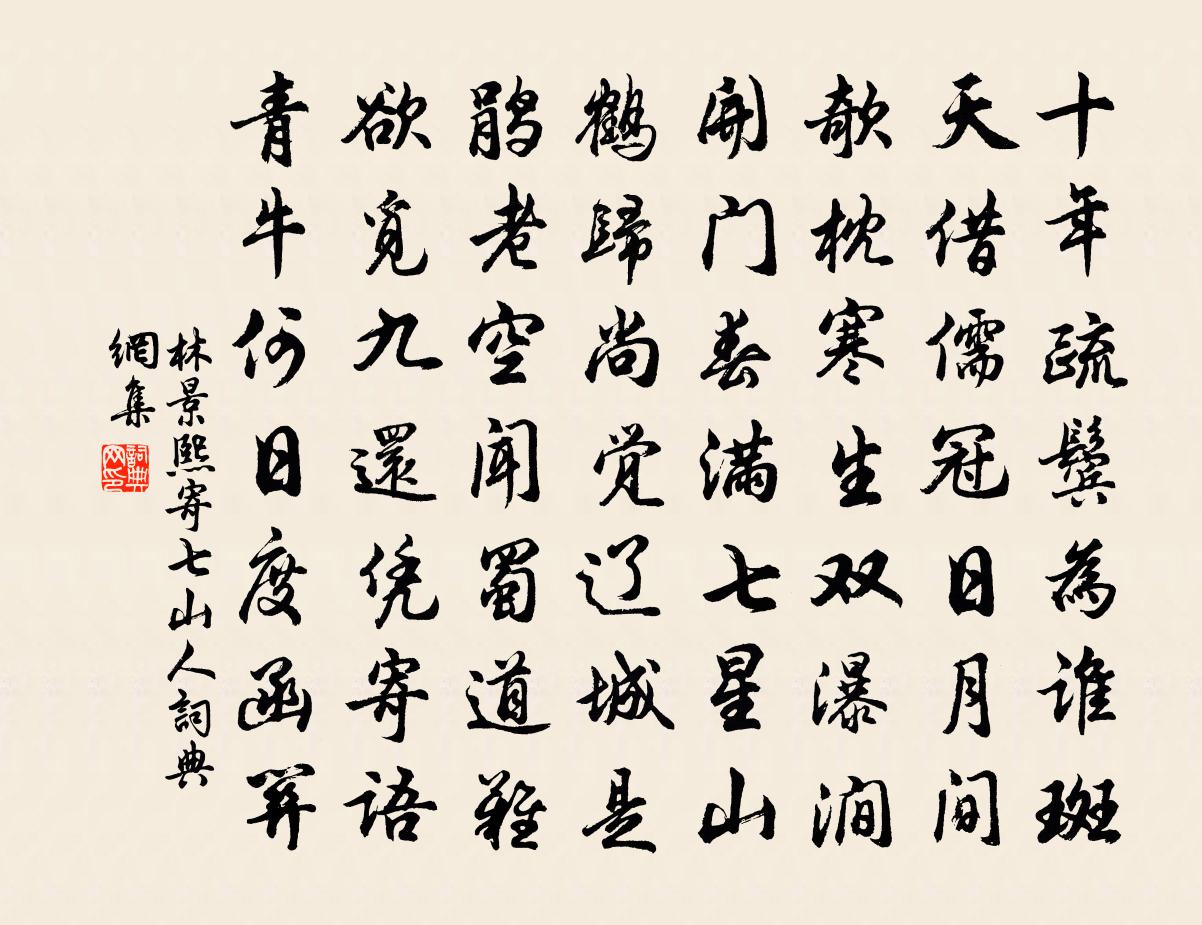 十年疏鬓為谁斑
天借儒冠日月间
欹枕寒生双瀑涧
開门春满七星山
鶴歸尚觉辽城是
鹃老空闻蜀道難
欲觅九還凭寄语
青牛何日度函關
林景熙寄七山人詞典
網集
詞典网印